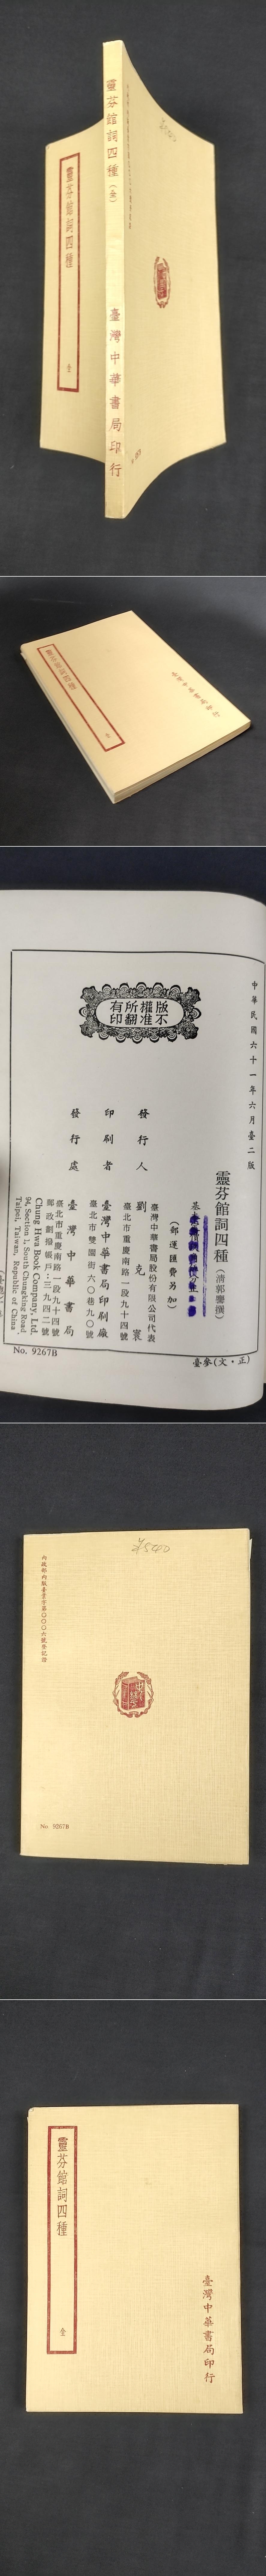 靈芬館詞四種
全
靈芬館詞四種（全）
臺灣中華書局印行
靈芬館詞四種
全
臺灣中華書局印行
版權所有
不准翻印
中華民國六十一年六月臺二版
靈芬館詞四種（清郭麐撰）
基
（郵運匯費另加）
發行人
臺灣中華書局股份有限公司代表
劉克寰
臺北市重慶南路一段九十四號
印刷者
臺灣中華書局印刷廠
臺北市雙園街六〇巷九〇號
發行處
臺灣中華書局
臺北市重慶南路一段九十四號
郵政劃撥帳戶：三九四二號
Chung Hwa Book Company, Ltd.
94, Section 1, South Chungking Road,
Taipei, Taiwan, Republic of China
No. 9267B
臺參（文・正）
內政部內版臺業字第〇〇〇六號登記證
No. 9267B
靈芬館詞四種
全
臺灣中華書局印行